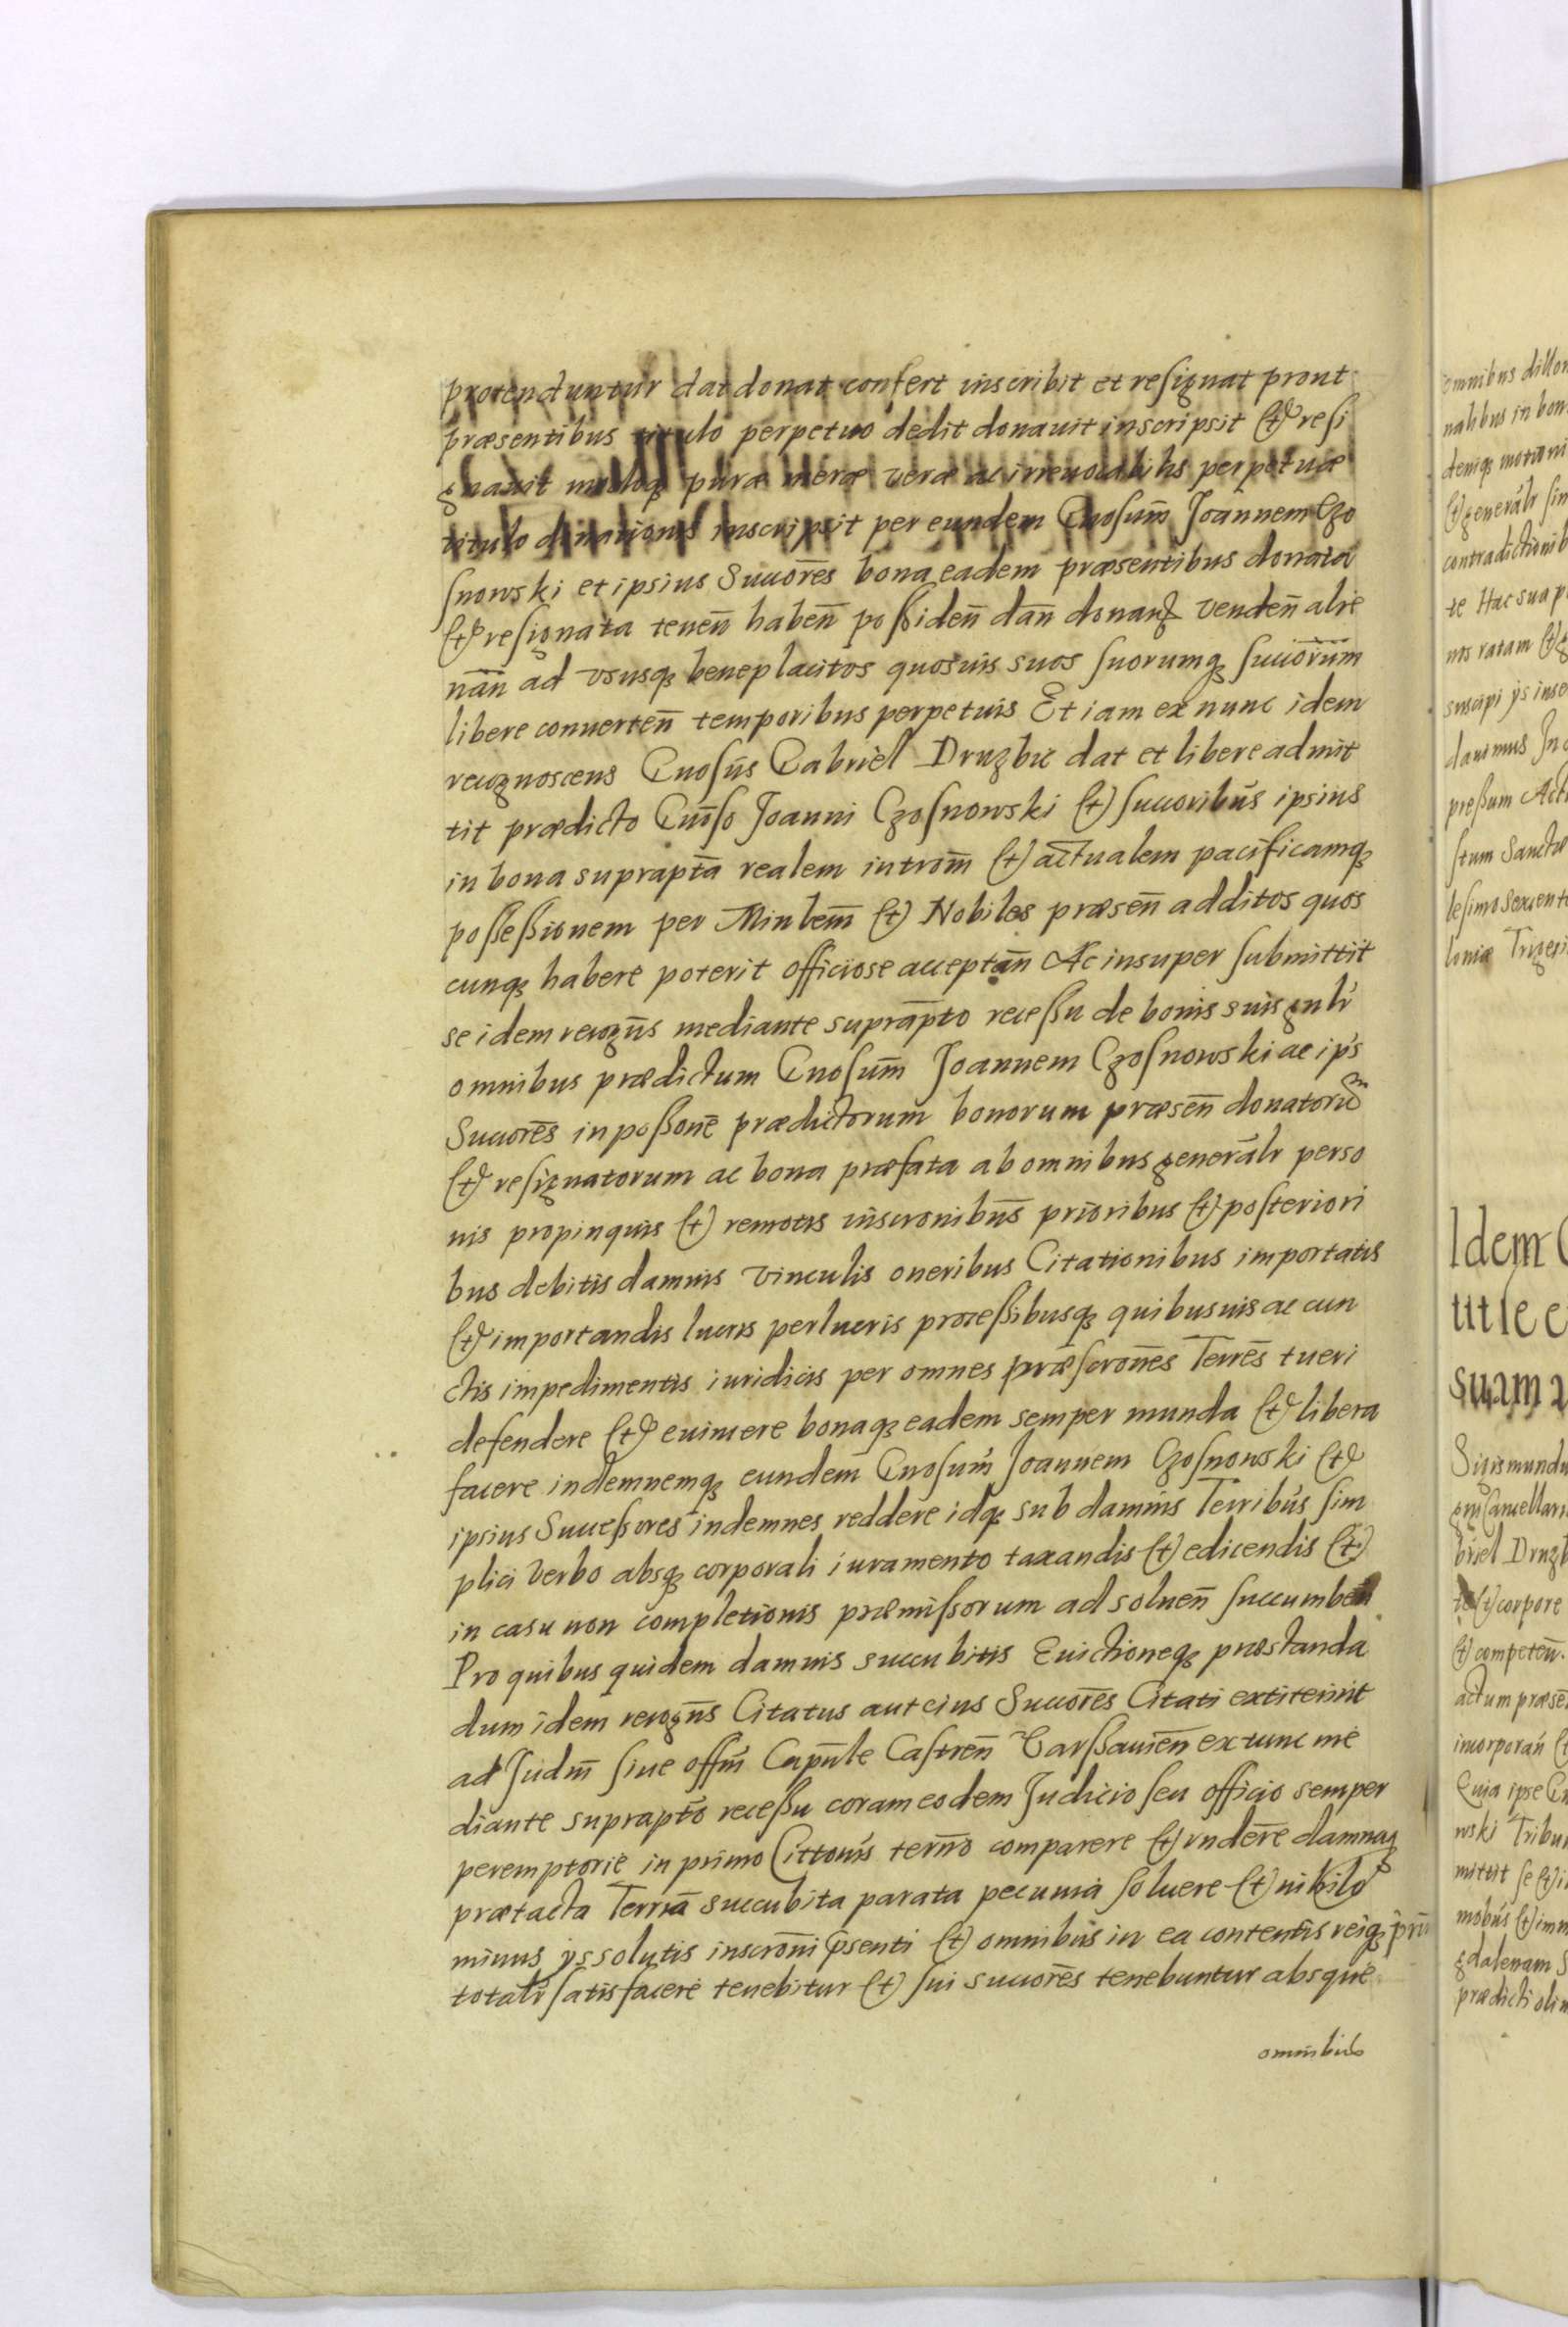 protenduntur dat donat confert inscribit et resignat prout
præsentibus titulo perpetuo dedit donauit inscripsit et resi
gnauit modoq puræ meræ veræ ac irreuocabilis perpetuæ
titulo donationis inscripsit per eundem Gnosum̄ Joannem Czo
snowski et ipsius Succores̄ bona eadem præsentibus donata
et resignata tenen̄ haben̄ possiden̄ dan̄ donanq venden̄ alie
nan̄ ad vsusq beneplacitos quosuis suos suorumq succorum̄
libere conuerten̄ temporibus perpetuis Et iam ex nunc idem
recognoscens Gnosus̄ Gabriel Druzbic dat et libere admit
tit prædicto Gnoso Joanni Czosnowski et succoribus ipsius
in bona suprapta̅ realem introm̄ et actualem pacificamq
possessionem per Minlem̄ et Nobiles præsen̄ additos quos
cunq habere poterit officiose acceptan̄ Ac insuper submittit
se idem recogns̄ mediante suprapto̅ recessu de bonis suis gnlr
omnibus prædictum Gnosum̄ Joannem Czosnowski ac ips
Succores̄ in possone̅ prædictorum bonorum præsen̄ donatorum
et resignatorum ac bona præfata ab omnibus generalr perso
nis propinquis et remotis inscronibus̄ prioribus et posteriori
bus debitis damnis vinculis oneribus Citationibus importatis
et importandis lucris perlucris processibusq quibusuis ac cun
ctis impedimentis iuridicis per omnes præscrones̄ Terres̄ tueri
defendere et euincere bonaq eadem semper munda et libera
facere indemnemq eundem Gnosum̄ Joannem Czosnowski et
ipsius Successores indemnes reddere idq sub damnis Terribus sim
plici verbo absq corporali iuramento taxandis et edicendis et
in casu non completionis præmissorum ad soluen̄ succumben
Pro quibus quidem damnis succubitis Euictioneq præstanda
dum idem recogns̄ Citatus aut eius Succores̄ Citati extiterint
ad Judm̄ siue offm̄ Capnle̅ Castren̄ Varssauien̄ extunc me
diante suprapto̅ recessu coram eodem Judicio seu officio semper
peremptorie in primo Cittonis̄ terno̅ comparere et rndere̅ damnaq
prætacta Terria̅ succubita parata pecunia soluere et nihilo
minus ys solutis inscroni̅ psenti̅ et omnibus in ea contentis reiq prin
totalr satisfacere tenebitur et sui succores̄ tenebuntur absque
omnibus
omnibus dillon
nalibus in bon
deniq motioni
et generalr sin
contradictionib
te Hac sua p
nis ratam et g
suscipi ys inse
dauimus In c
pressum Actu
stum Sanctæ
lesimo Sexcento
loniæ Trigesi
Idem G
tit se e
suam a
Sigismundu
gni Cancellari
briel Druzb
te et corpore
et competen̄.
actum præsen̄
incorporan̄ et
Quia ipse Gn
wski Tribu
mittit se et i
mobus et imm
gdalenam S
prædicti olim